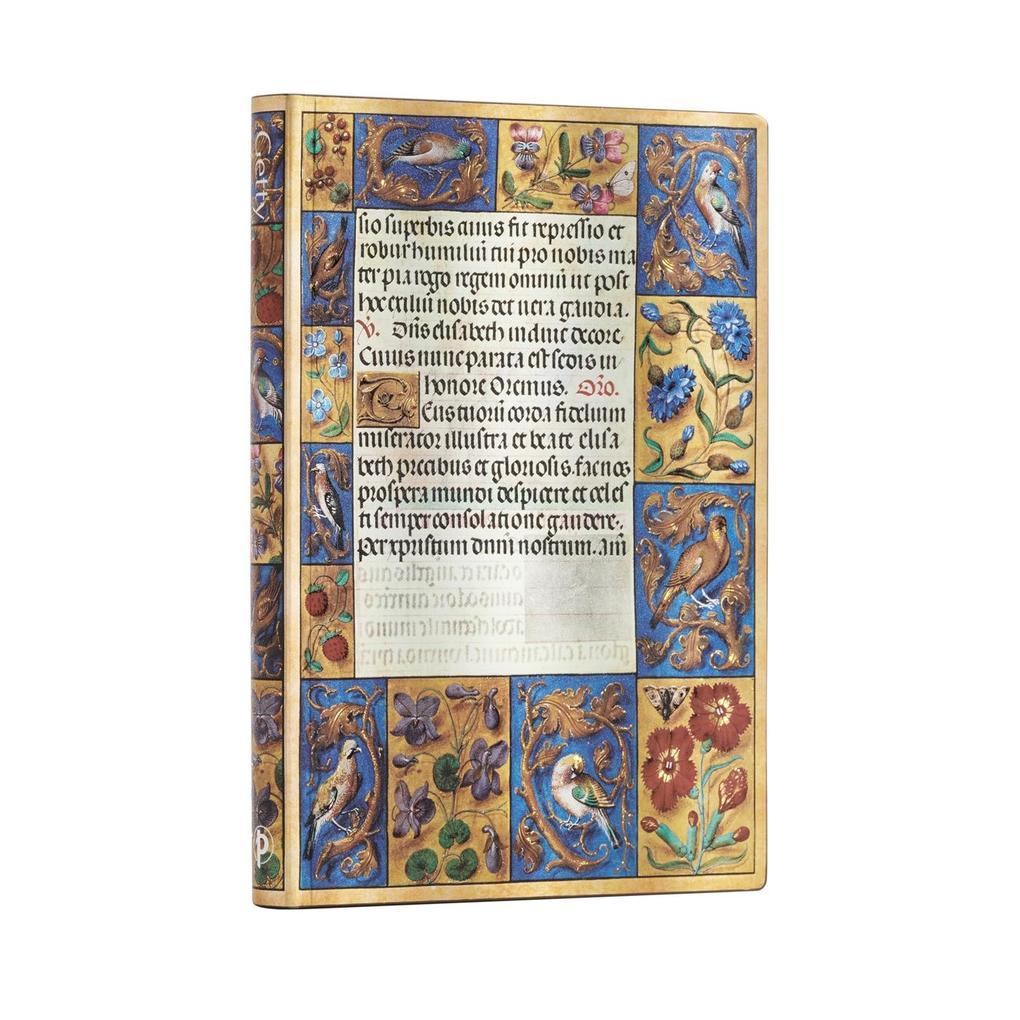 Getty
sio superbis cuius fit repressio et
robur humiliū cui pro nobis ma
ter pia rogo regem omniū ut post
hoc exiliū nobis det uera gaudia.
V. Dn̄s elisabeth induit decore
Cuius nunc parata est sedis in
honore Oremus. Or̄o.
DEus tuorū corda fidelium
miserator illustra et beate elisa
beth precibus et gloriosis. fac nos
prospera mundi despicere et celes
ti semper consolatione gaudere.
Per xpristum dn̄m nostrum. am̄
p